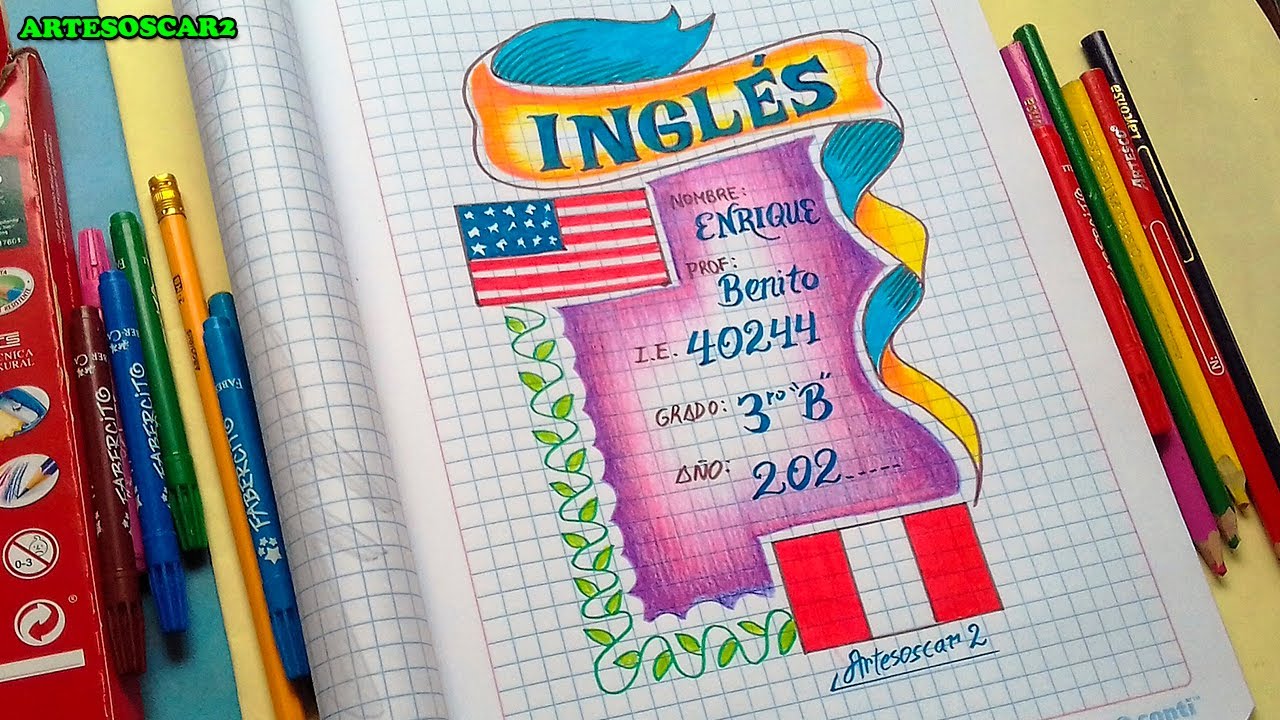 ARTESOSCAR2
INGLÉS
NOMBRE:
ENRIQUE
PROF:
Benito
I.E. 40244
GRADO: 3ro "B"
AÑO: 202.....
Artesoscar 2
FABERCITO
FABERCITO
FABERCITO
FABER
0-3
ARTESCO